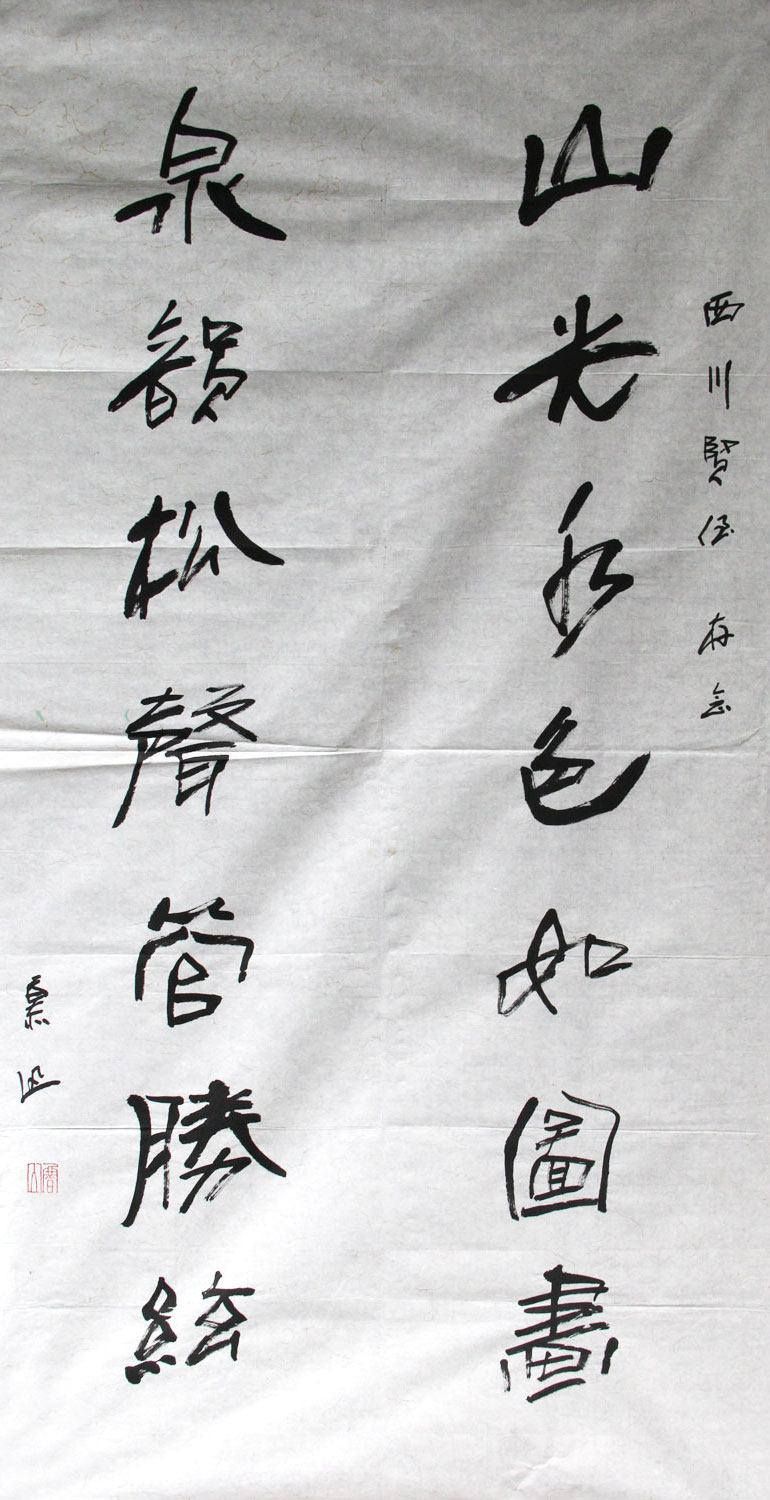 西川賢侄 存念
山光水色如圖畫
泉韻松聲管勝絃